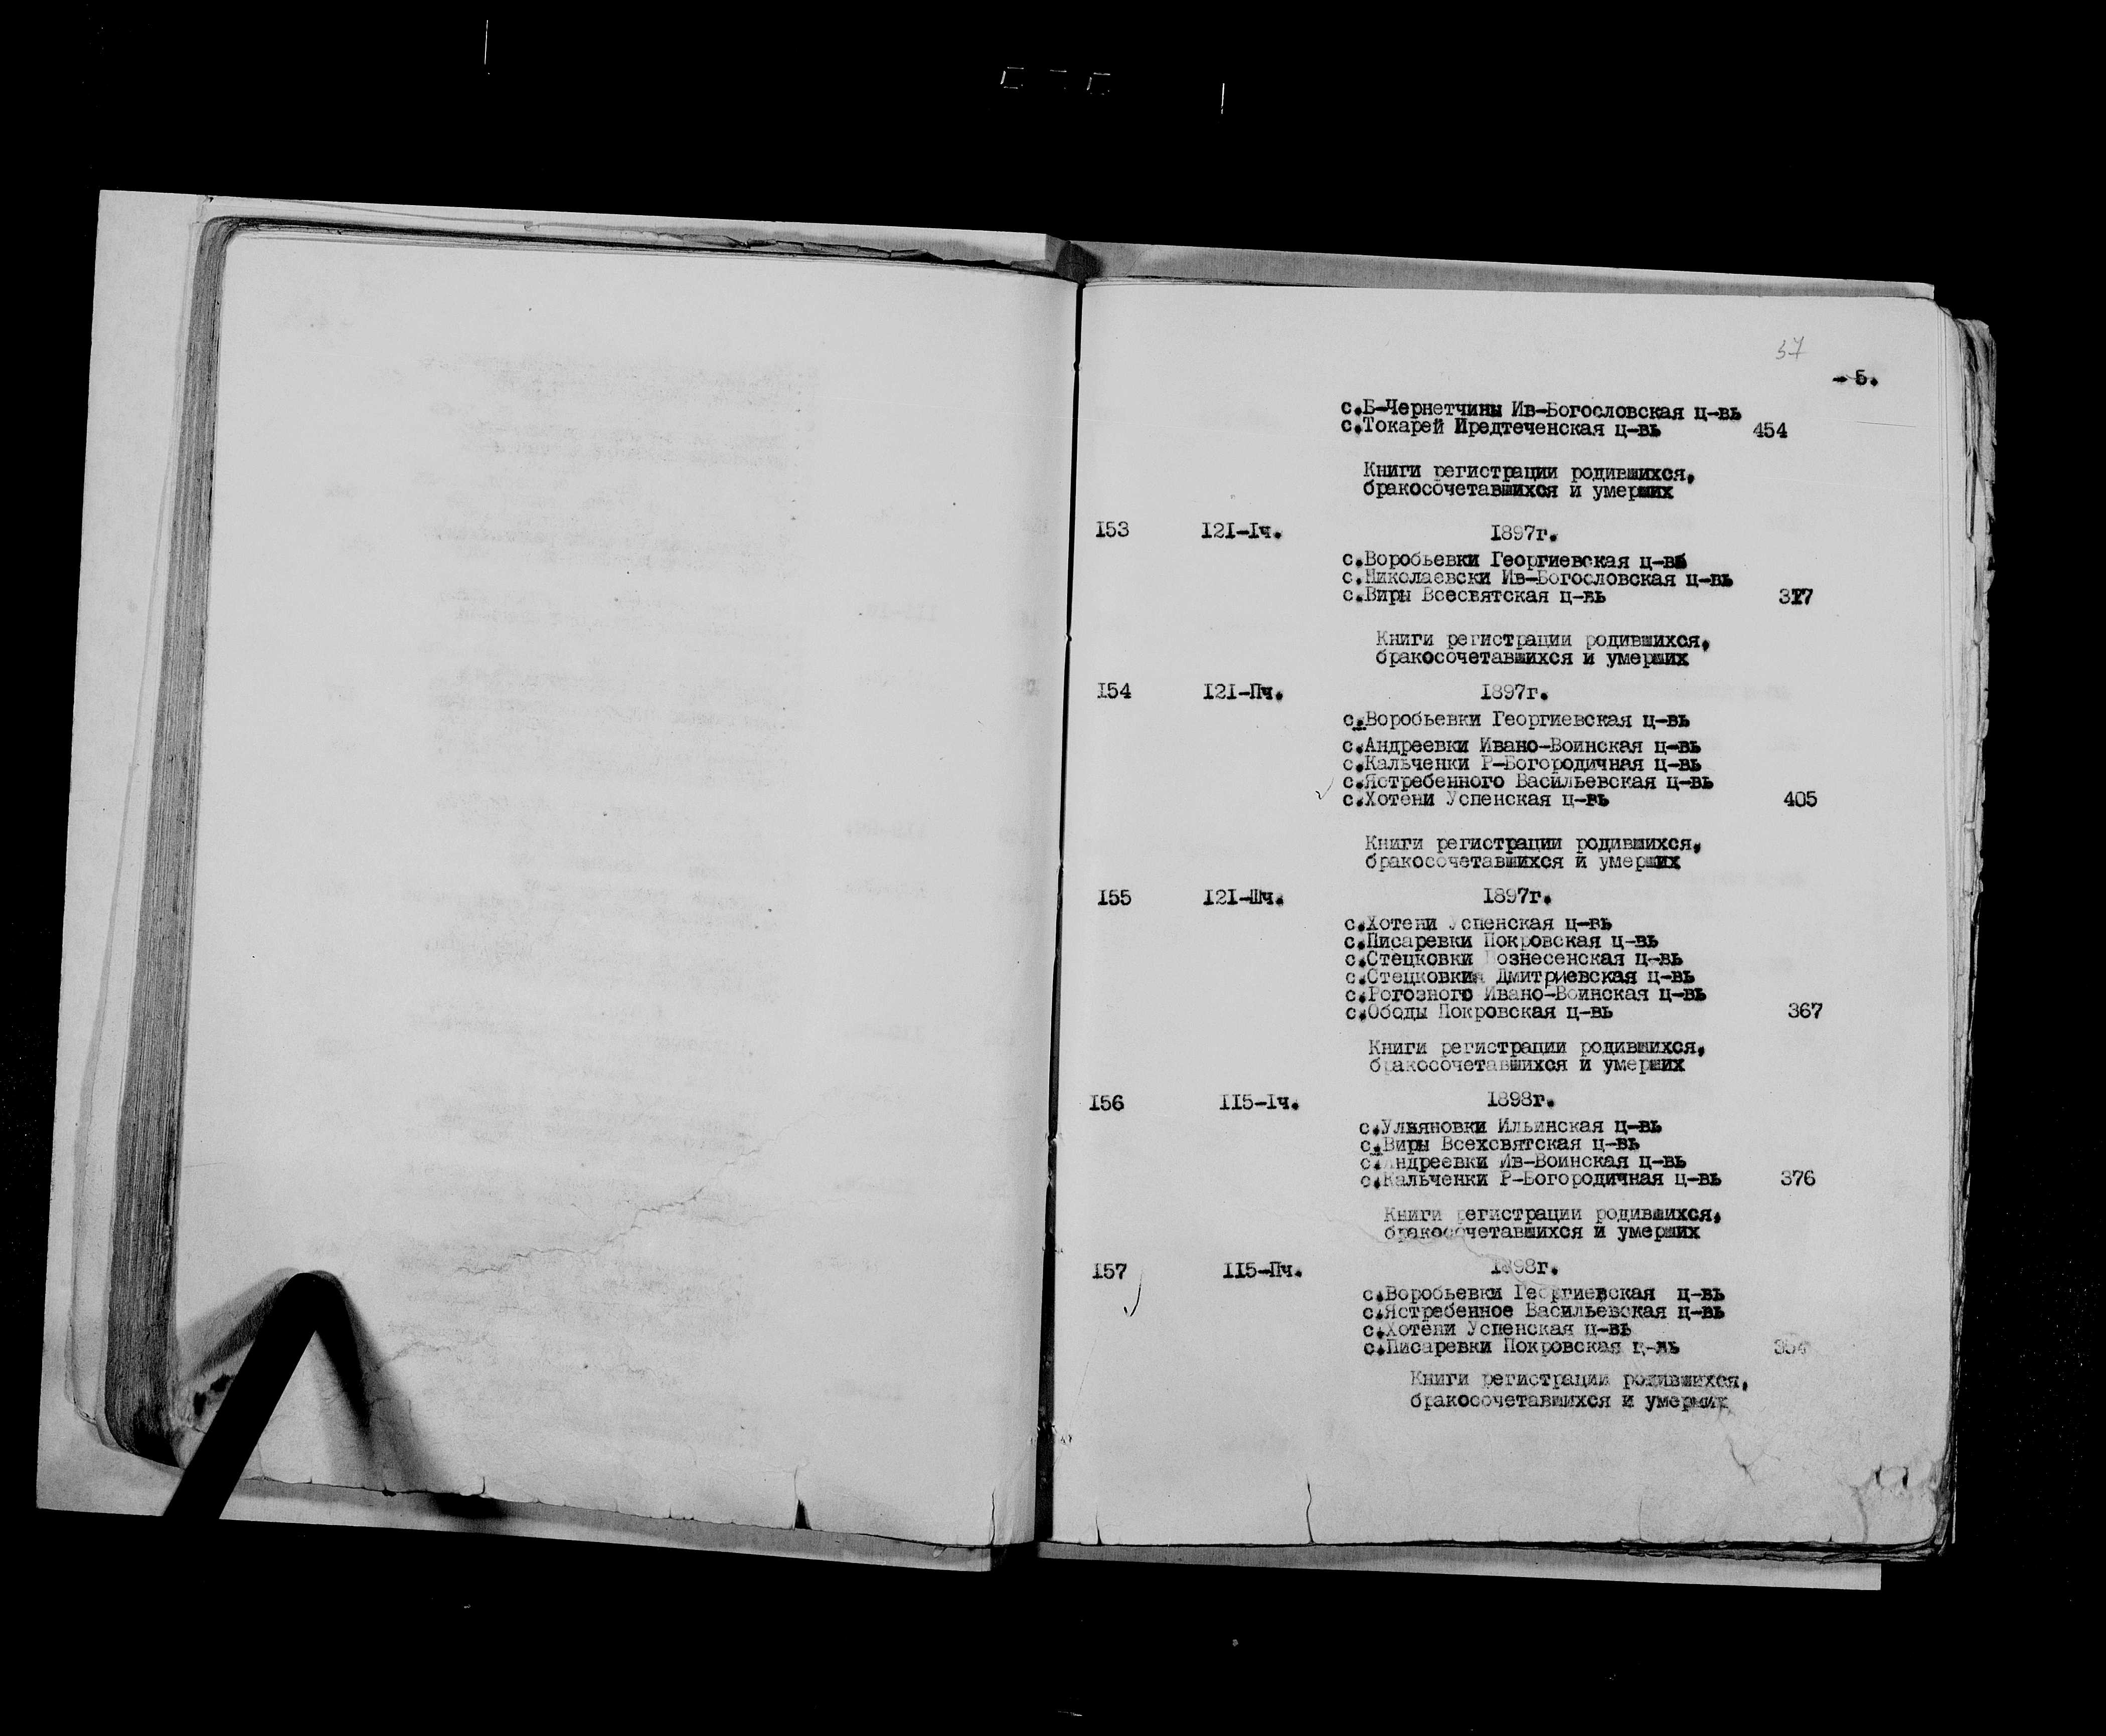 37
- 5.
с.Б-Чернетчины Ив-Богословская ц-вь
с.Токарей Предтеченская ц-вь 454
Книги регистрации родившихся,
бракосочетавшихся и умерших
I53 I2I-Iч. I897г.
с.Воробьевки Георгиевская ц-вь
с.Николаевски Ив-Богословская ц-вь
с.Виры Всесвятская ц-вь 317
Книги регистрации родившихся,
бракосочетавшихся и умерших
I54 I2I-Пч. I897г.
с.Воробьевки Георгиевская ц-вь
с.Андреевки Ивано-Воинская ц-вь
с.Кальченки Р-Богородичная ц-вь
с.Ястребенного Васильевская ц-вь
с.Хотени Успенская ц-вь 405
Книги регистрации родившихся,
бракосочетавшихся и умерших
I55 I2I-Шч. I897г.
с.Хотени Успенская ц-вь
с.Писаревки Покровская ц-вь
с.Стецковки Вознесенская ц-вь
с.Стецковки Дмитриевская ц-вь
с.Рогозного Ивано-Воинская ц-вь
с.Ободы Покровская ц-вь 367
Книги регистрации родившихся,
бракосочетавшихся и умерших
I56 II5-Iч. I898г.
с.Ульяновки Ильинская ц-вь
с.Виры Всехсвятская ц-вь
с.Андреевки Ив-Воинская ц-вь
с.Кальченки Р-Богородичная ц-вь 376
Книги регистрации родившихся,
бракосочетавшихся и умерших
I57 II5-Пч. I898г.
с.Воробьевки Георгиевская ц-вь
с.Ястребенное Васильевская ц-вь
с.Хотени Успенская ц-вь
с.Писаревки Покровская ц-вь
Книги регистрации родившихся,
бракосочетавшихся и умерших